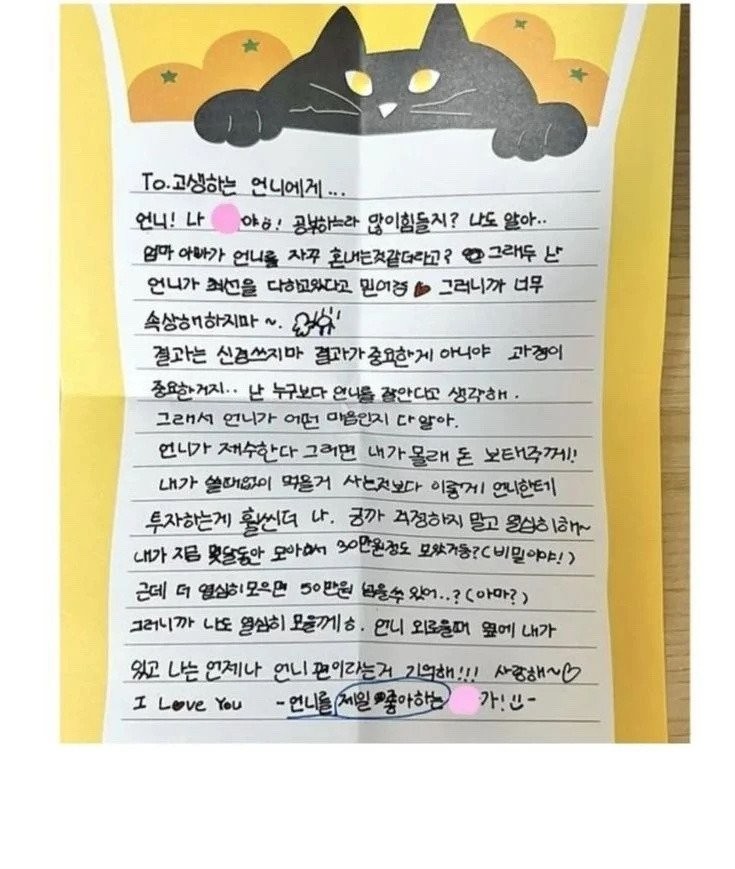 To.고생하는 언니에게...
언니! 나 야ㅎ! 공부하느라 많이힘들지? 나도 알아..
엄마 아빠가 언니를 자꾸 혼내는것같더라고? 그래두 난
언니가 최선을 다하고있다고 믿어정 그러니까 너무
속상해하지마~.
결과는 신경쓰지마 결과가중요한게 아니야 과정이
중요한거지.. 난 누구보다 언니를 잘안다고 생각해.
그래서 언니가 어떤 마음인지 다알아.
언니가 재수한다 그러면 내가몰래 돈 보태주께!!
내가 쓸때없이 먹을거 사는것보다 이렇게 언니한테
투자하는게 훨씬더 나. 긍까 걱정하지 말고 열심히해~
내가 지금 몇달동안 모아서 30만원정도 모았거등?(비밀이야!)
근데 더 열심히모으면 50만원 넘을수 있어..?(아마?)
그러니까 나도 열심히 모을께ㅎ. 언니 외로울때 옆에 내가
있고 나는 언제나 언니 편이라는거 기억해!!! 사랑해~♡
I Love You -언니를 제일 좋아하는 가!-